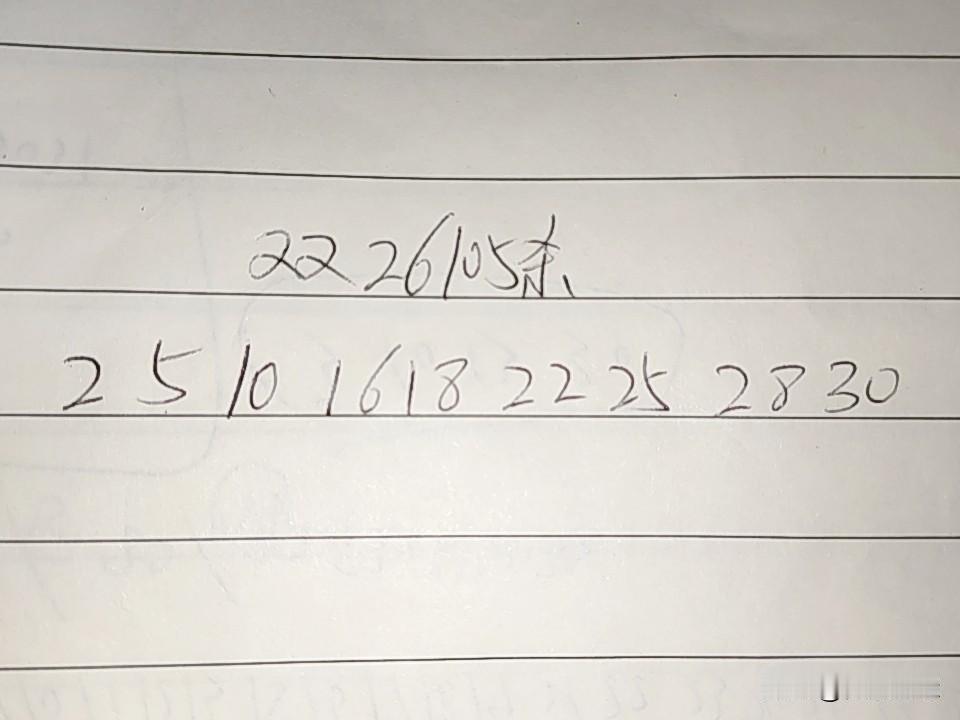 22 26105杀
2 5 10 16 18 22 25 28 30